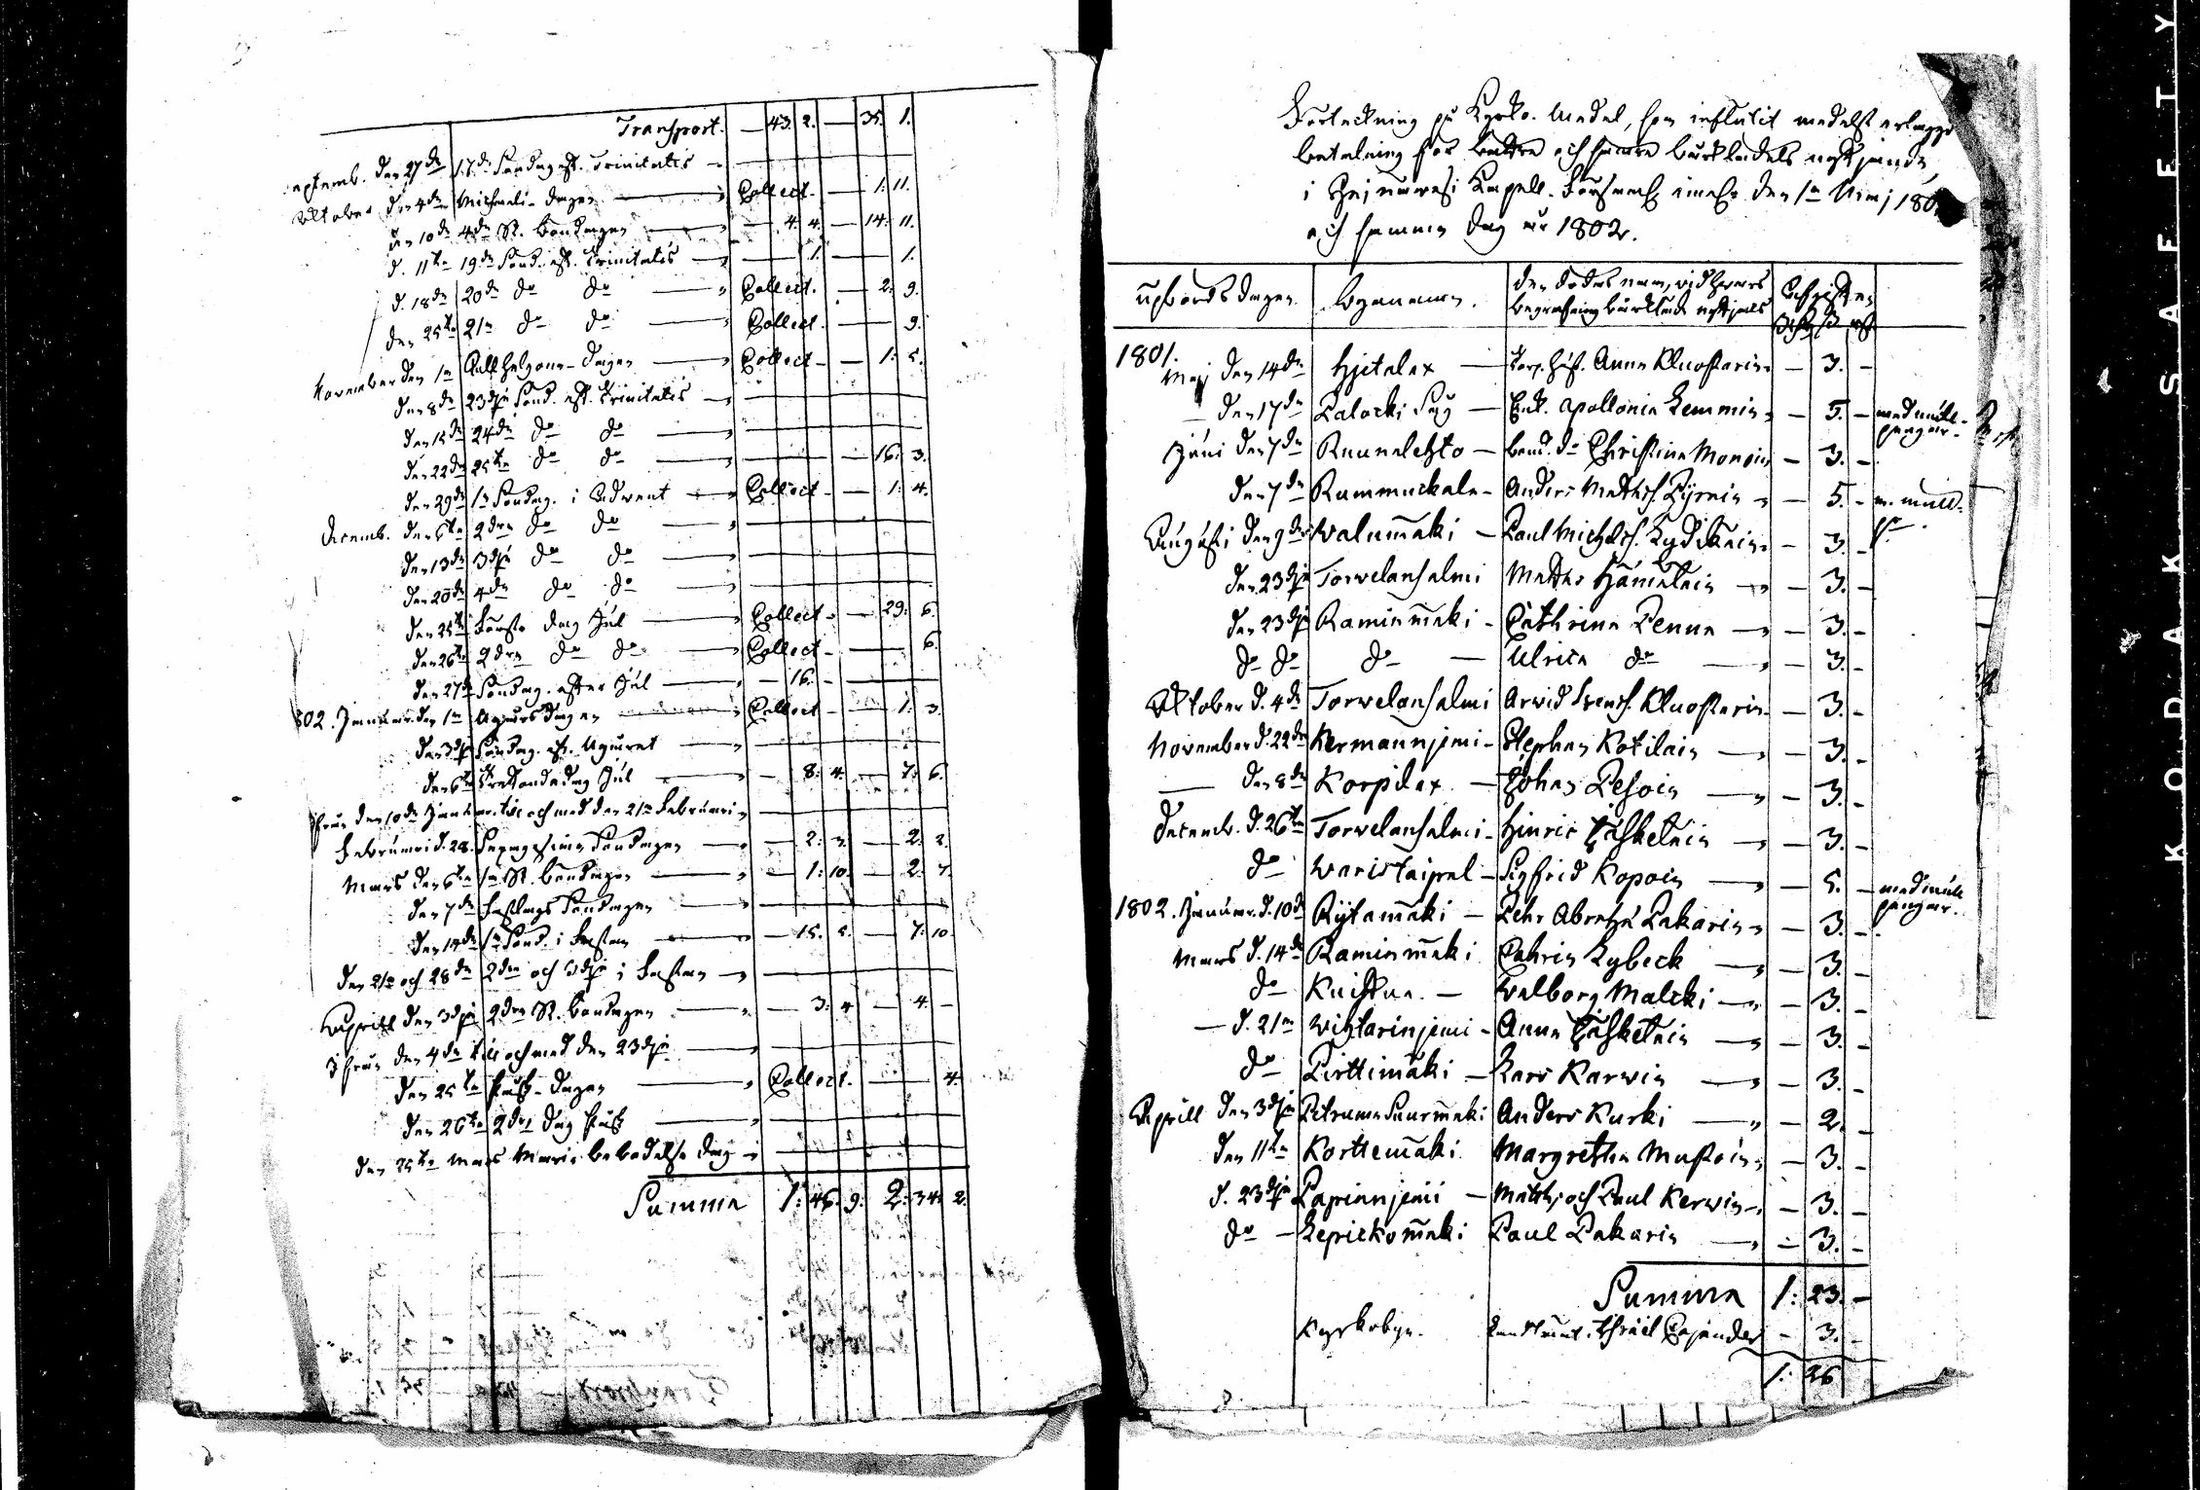 Transport. — 43. 2. — 35. 1.
eptemb. den 27de 17de Söndag. eft. Trinitatis
October den 4de Michaeli-dagen Collect. — 1: 11.
den 10de 4de St. Böndagen — 4. 4. — 14: 11.
d. 11te 19de Sönd. eft. Trinitatis — 1. — 1.
d. 18de 20de do do Collect. — 2: 9.
den 25te 21a do do Collect. — 9.
November den 1a Allhelgona-dagen Collect — 1: 5.
den 8de 23dje Sönd. eft. Trinitatis
den 15de 24de do do
den 22dra 25te do do — 16: 3.
den 29de 1a Söndag. i Advent Collect — 1: 4.
Decemb. den 6te 2dra do do
den 13de 3dje do do
den 20de 4de do do
den 25te Första dag Jul Collect — 29: 6.
den 26te 2dra do do Collect — 6.
den 27de Söndag. efter Jul — 16: —
802. Januar. den 1a Nyårsdagen Collect — 1: 3.
den 3dje Söndag. eft. Nyåret
den 6te Trettondedag Jul — 8: 4. — 7: 6.
ifrån den 10de Januar. til och med den 21a Februari
Februari d. 28. Sexagesima Söndagen — 2: 3. — 2: 2.
Mars den 6te 1a St. Böndagen — 1: 10. — 2: 7.
den 7de Fastlags Söndagen
den 14de 1a Sönd. i Fastan — 15. 5. — 7: 10.
den 21a och 28de 2dra och 3dje i Fastan
Aprill den 3dje 2dra St. Böndagen — 3: 4 — 4. —
Ifrån den 4de til och med den 23dje
den 25te Påsk-dagen Collect. — 4.
den 26te 2dra dag Påsk
den 25te Mars Mariæ bebådelse dag
Summa 1: 46. 9. 2: 34: 2.
Förteckning på Kyrko-Medel, som influtit medelst erlagge
betalning för bättre och sämre bårklädets nyttjande,
i Kapell-Församl. ifrån den 1a Maj 180
och samma dag år 1802.
upbördsdagen. bynamnen. den dödes namn, vid hvars
begrafning bårkläde nyttjats
1801. Maj den 14de Hjitalax — Anna Kluostarin — 3. —
— den 17de Palocki Sÿÿ — Enk. Apollonia Lemmin — 5. — med mull-
pengar.
Juni den 7de Ruunalehto — bond. do Christina Monoin — 3. —
den 7de Rummukala — Anders Mattss. Pÿrain — 5. — m. mull-
Augusti den 9de Walumäki — Paul Michelss. Lydikain — 3. —
den 23dje Torvelansalmi Matts Hämelain — 3. —
den 23dje Raminmäki — Cathrina Penna — 3. —
do do do — Ulrica do — 3. —
October d. 4de Torvelansalmi Arvid Svens. Kluostarin — 3. —
November d. 22dra Kermannjemi — Stephan Kotilain — 3. —
— den 8de Korpilax — Johan Pesoin — 3. —
Decemb. d. 26te Torvelansalmi — Hinric Jäskelain — 3. —
do Waristaipal — Sigfrid Kopoin — 5. — med mull
pengar.
1802. Januar. d. 10de Rÿtämäki — Pehr Abrahs. Pakarin — 3. —
Mars d. 14de Raminmäki Cathrin Lybeck — 3. —
do Knistua — Walborg Malcki — 3. —
— d. 21a Wihtarinjemi — Anna Jäskelain — 3. —
do Pirttimäki — Lars Karwin — 3. —
Aprill den 3dje Petruma Suurmäki Anders Kurki — 2. —
den 11te Korttemäki Margretha Mustoin — 3. —
d. 23dje Papinnjemi — Matts, och Paul Kerwin — 3. —
do — Lepickomäki Paul Pakarin — 3. —
Summa 1: 23. —
Kyrkobyn. Israël Cajander — 3. —
1: 26
KODAK SAFETY